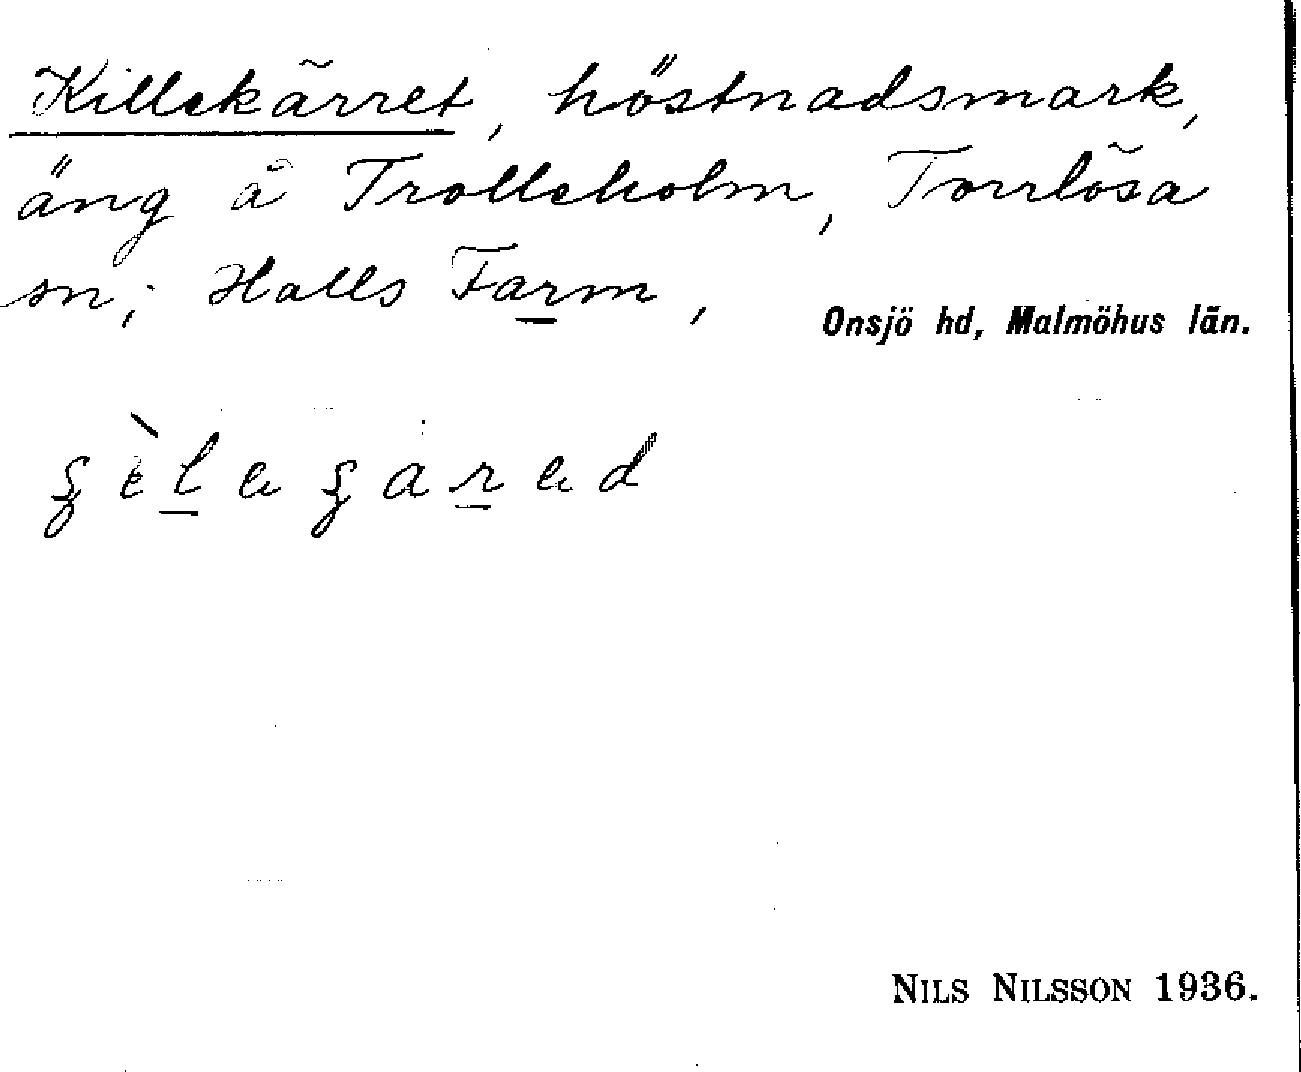 Killekärret, höstnadsmark,
äng å Trolleholm, Torrlösa
sn; Halls Farm,
Onsjö hd, Malmöhus län.
NILS NILSSON 1936.